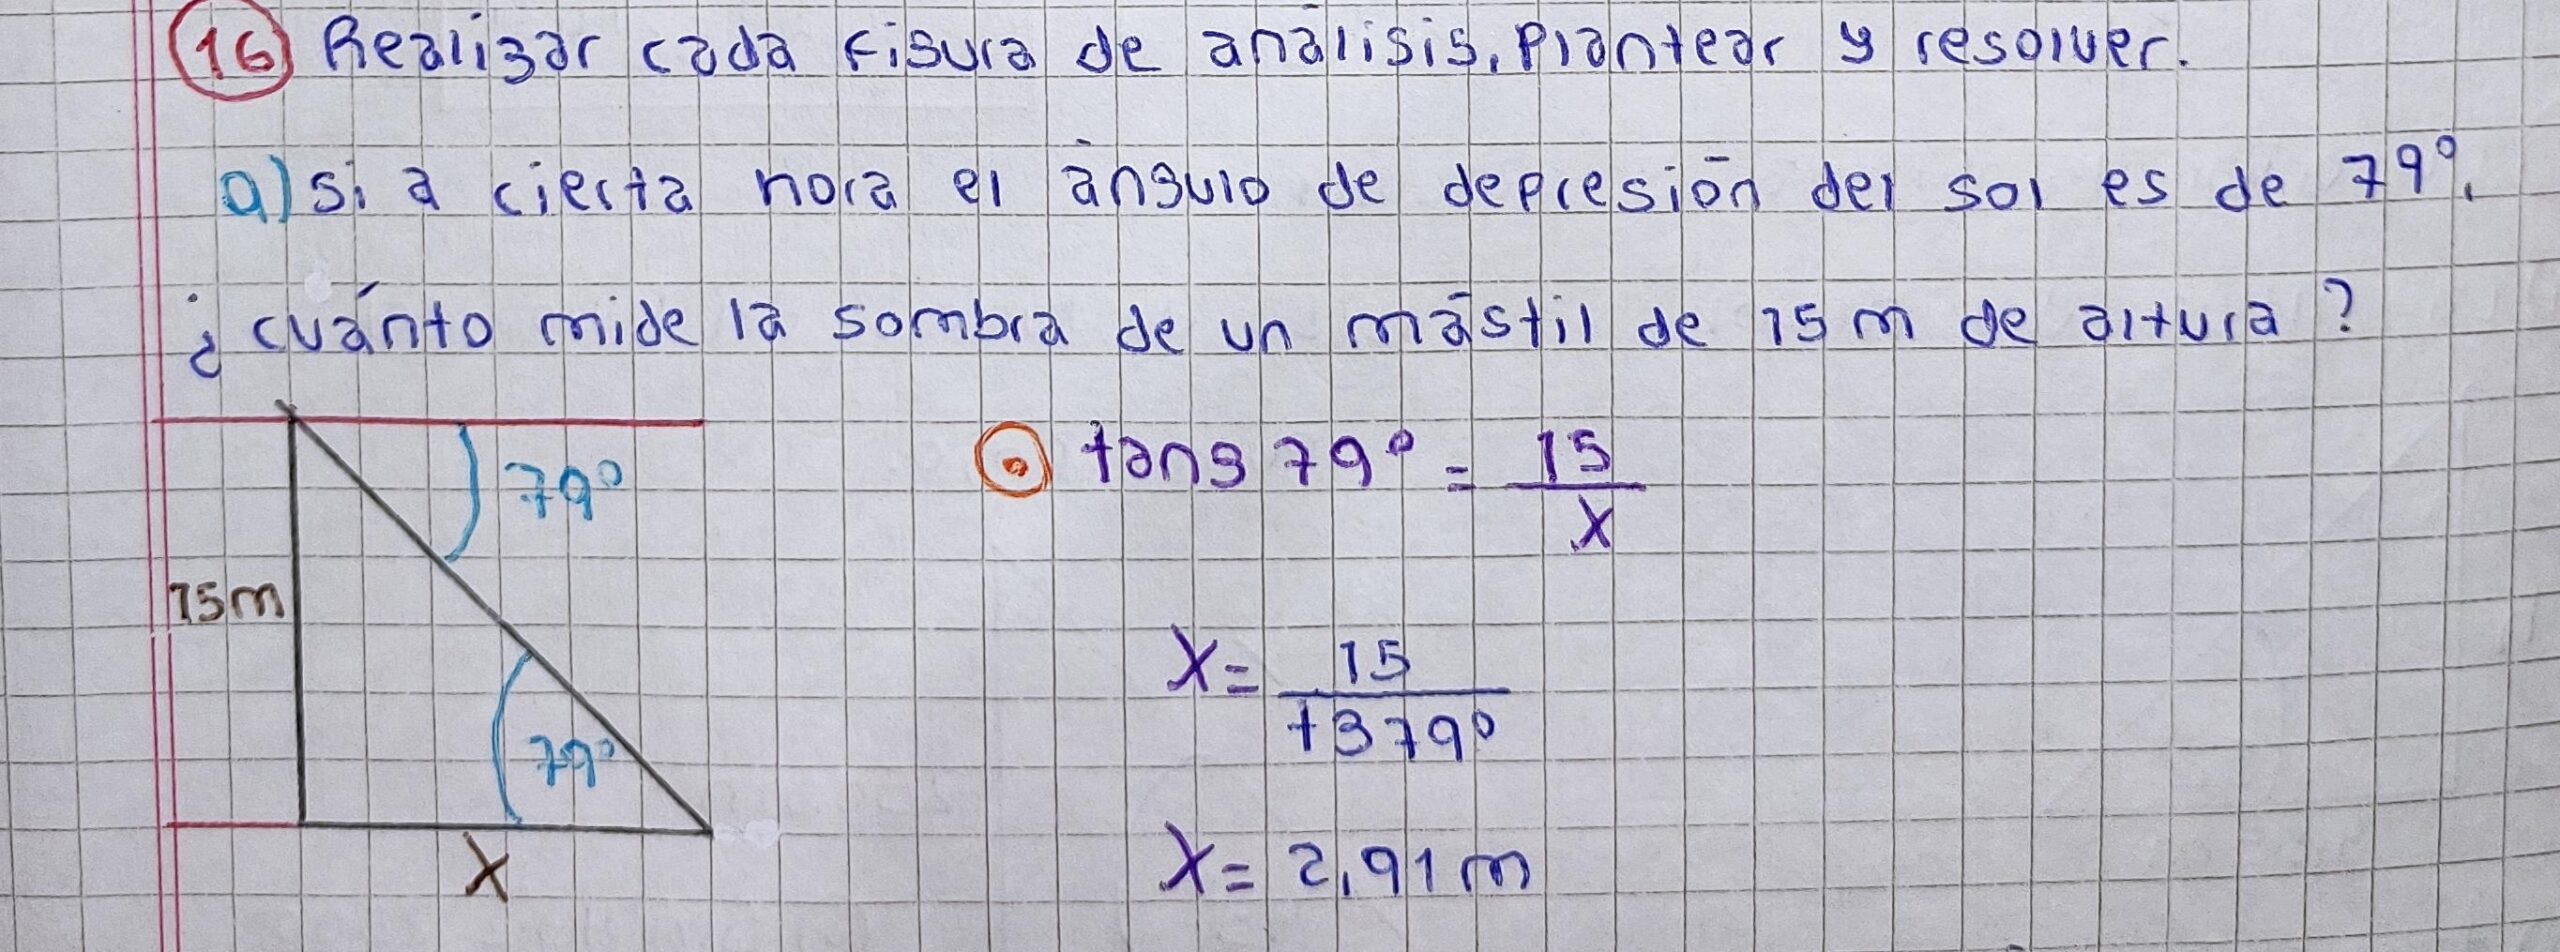 16 Realizar cada figura de análisis, Plantear y resolver.
a) si a cierta hora el ángulo de depresión del sol es de 79°,
¿cuánto mide la sombra de un mástil de 15 m de altura?
79°
15m
79°
X
tang 79° = 15/X
X = 15/tg 79°
X = 2,91 m